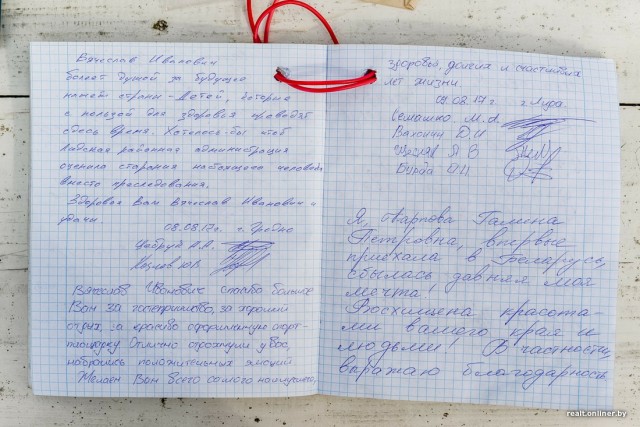 Вячеслав Иванович
болеет душой за будущее
нашей страны - детей, которые
с пользой для здоровья проводят
здесь время. Хотелось-бы чтоб
Лидская районная администрация
оценила старания настоящего человека
вместо преследования.
Здоровья Вам Вячеслав Иванович и
удачи.
08.08.17г. г. Гродно
Козлов Ю.В.
Вячеслав Иванович спасибо большое
Вам за гостеприимство, за хороший
отдых, за красиво оформленную спорт-
площадку. Отлично отдохнули у вас,
набрались положительных эмоций
Желаем Вам всего самого наилучшего,
здоровья, долгих и счастливых
лет жизни.
09.08.17г. г. Лида.
Семашко М.А.
Д.И
Я В
Бурда
Я, Карпова Галина
Петровна, впервые
приехала в Беларусь,
сбылась давняя моя
мечта!
Восхищена красота-
ми вашего края и
людьми! В частности,
выражаю благодарность
realt.onliner.by